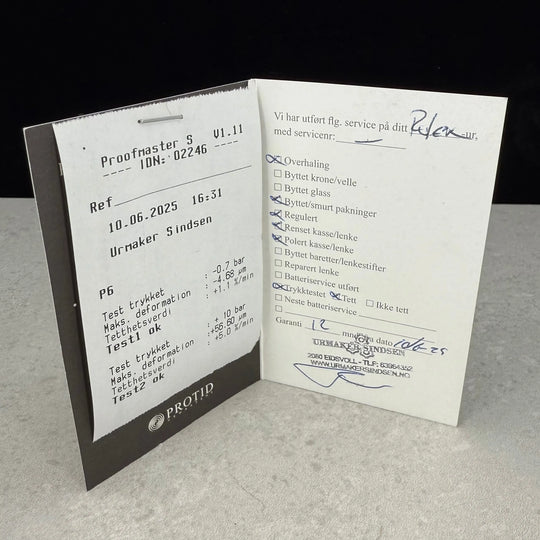 Proofmaster S V1.11
---- IDN: 02246 ----
Ref
10.06.2025 16:31
Urmaker Sindsen
P6
Test trykket : -0.7 bar
Maks. deformation : -4.68 µm
Tetthetsverdi : +1.1 %/min
Test1 ok
Test trykket : + 10 bar
Maks. deformation : +56.60 µm
Tetthetsverdi : +5.0 %/min
Test2 ok
PROTID
Vi har utført flg. service på ditt Rolex-ur,
med servicenr: –
Overhaling
Byttet krone/velle
Byttet glass
Byttet/smurt pakninger
Regulert
Renset kasse/lenke
Polert kasse/lenke
Byttet baretter/lenkestifter
Reparert lenke
Batteriservice utført
Trykktestet Tett Ikke tett
Neste batteriservice
Garanti 12 mnd fra dato 10/6-25
URMAKER SINDSEN
2080 EIDSVOLL - TLF: 63964352
WWW.URMAKERSINDSEN.NO